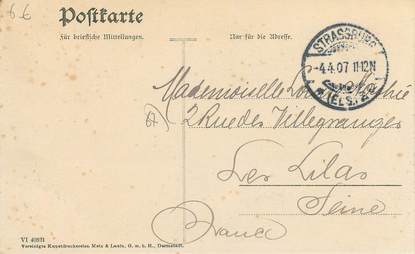 66
Postkarte
Für briefliche Mitteilungen.
Nur für die Adresse.
STRASSBURG
-4.4.07 11-12N
(ELS.)
Mademoiselle Sophie
2 Rue des Villegranges
Les Lilas
Seine
France
VI 40931
Vereinigte Kunstdruckereien Metz & Lautz, G. m. b. H., Darmstadt.